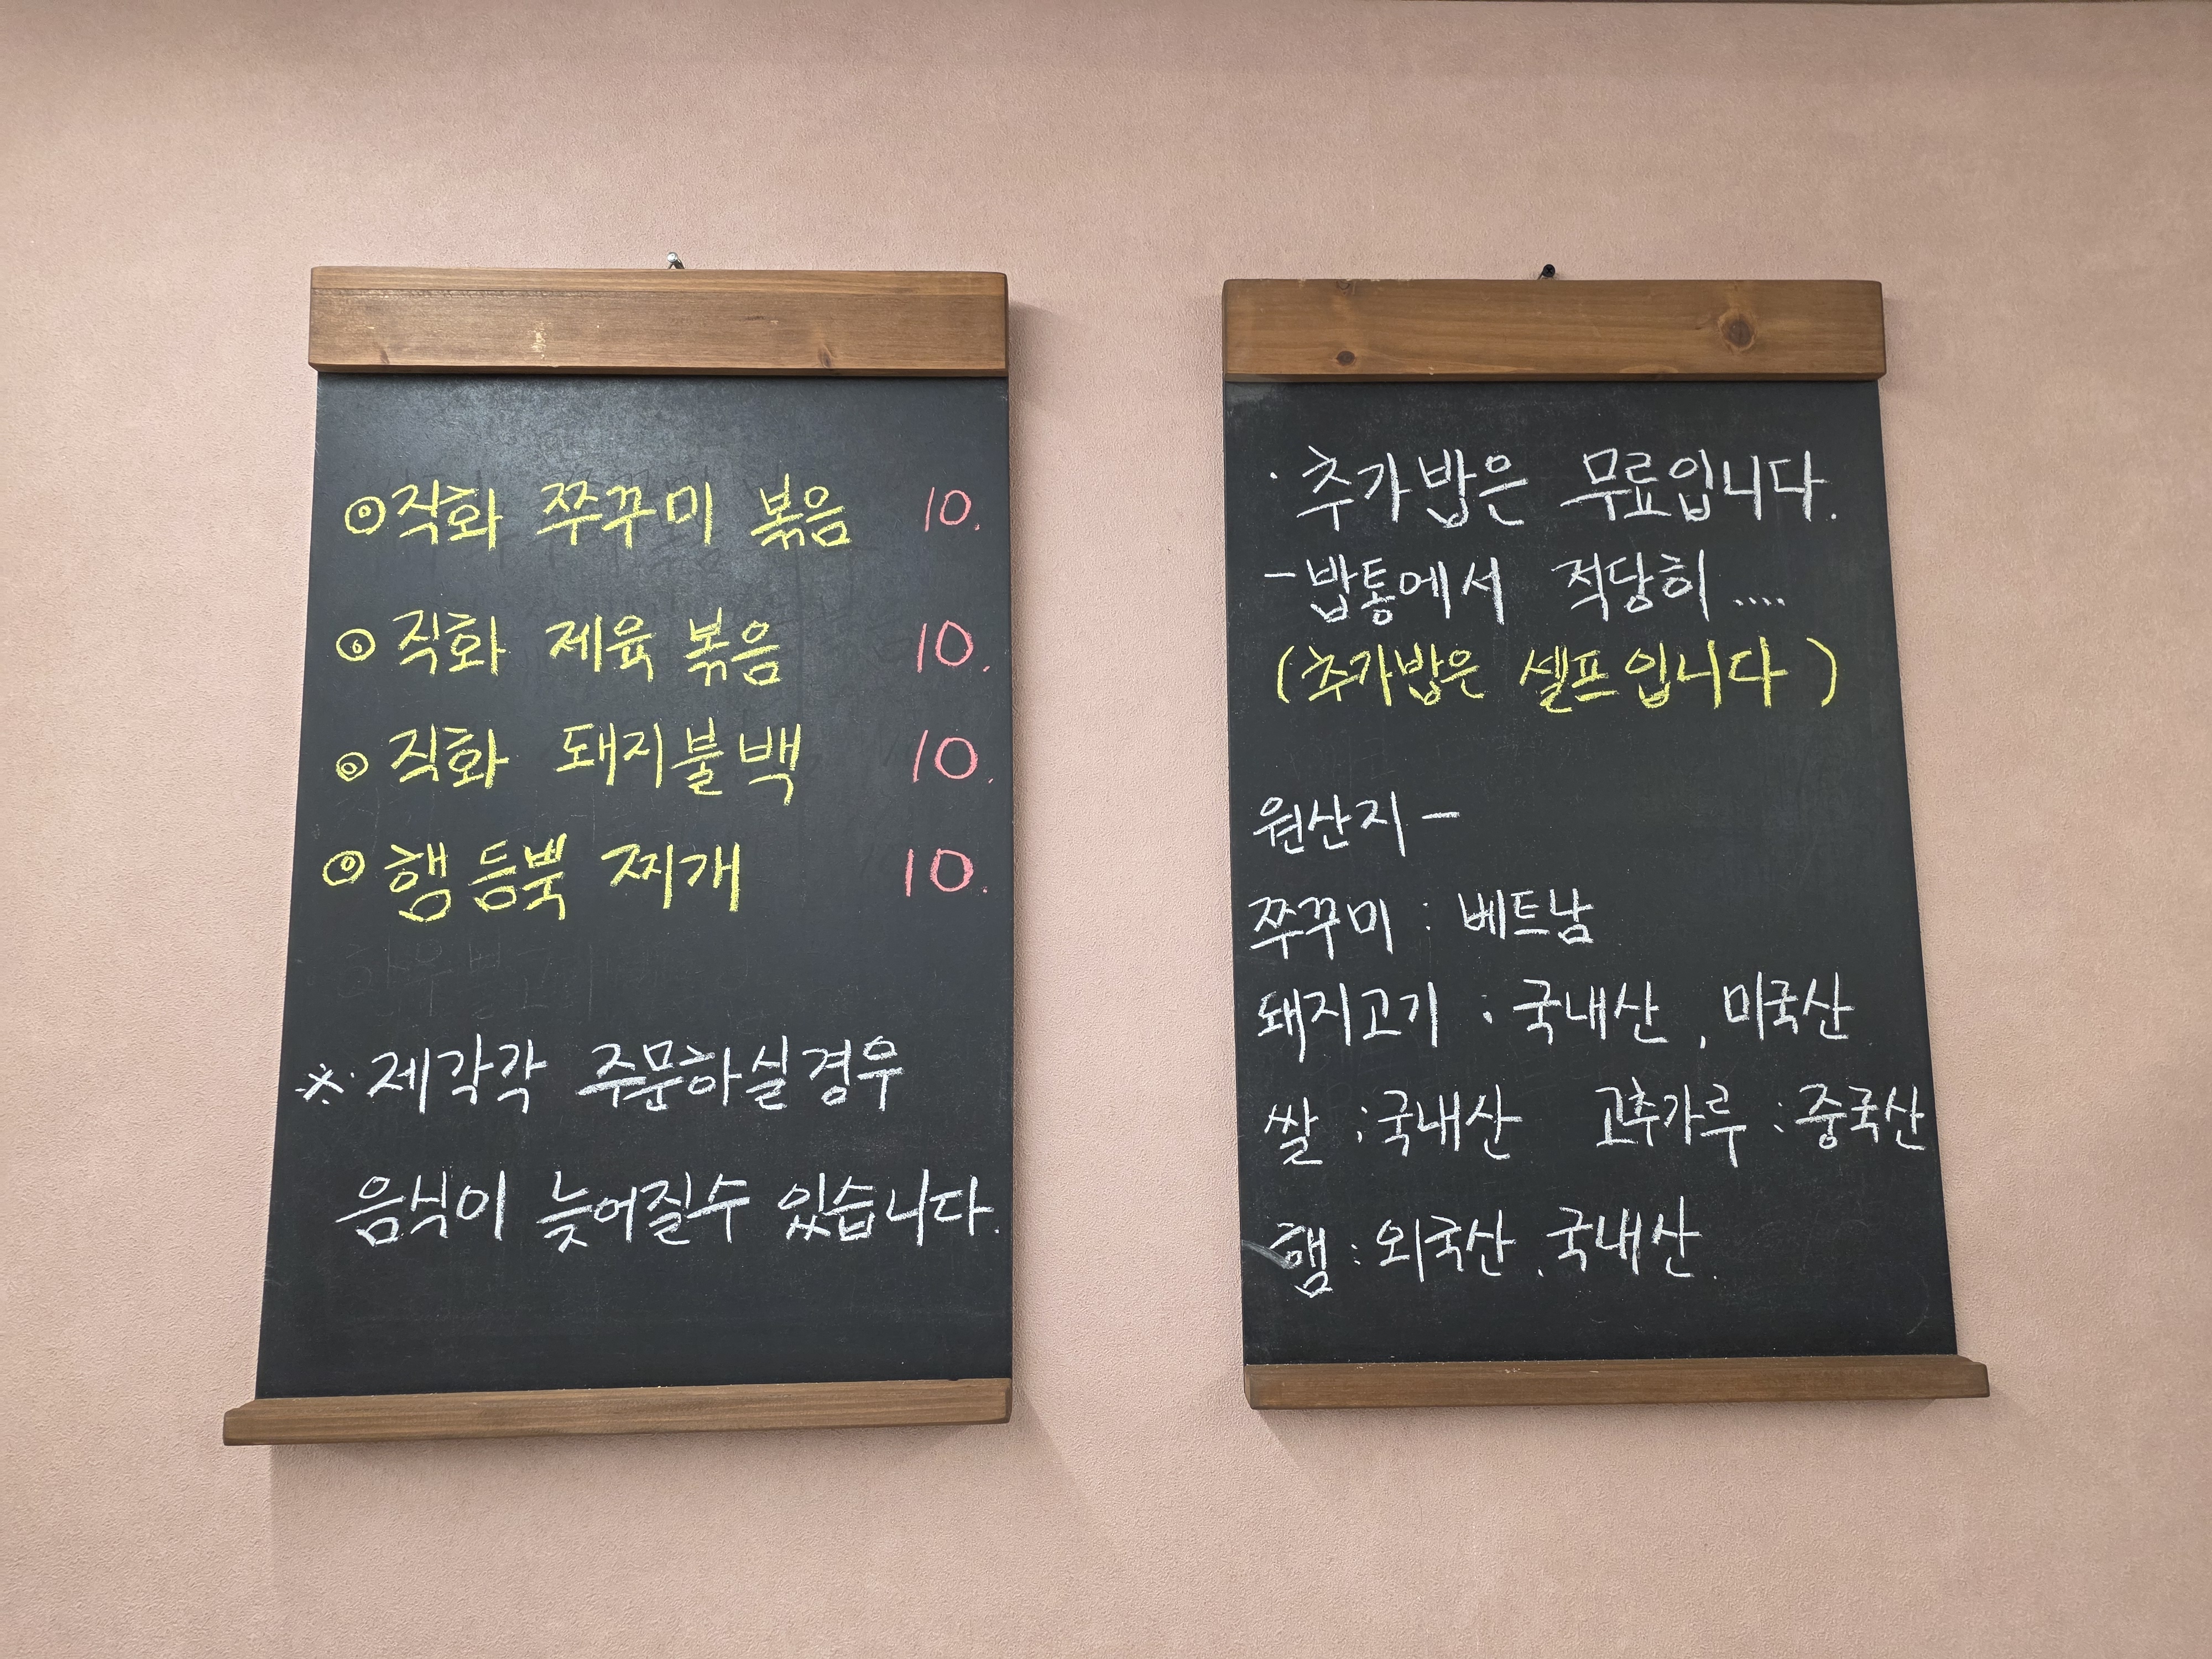 ◎직화 쭈꾸미 볶음 10.
◎ 직화 제육 볶음 10.
◎ 직화 돼지불백 10.
◎ 햄등뿍 찌개 10.
※ 제각각 주문하실경우
음식이 늦어질수 있습니다.
· 추가밥은 무료입니다.
- 밥통에서 적당히 ....
(추가밥은 셀프입니다)
원산지 -
쭈꾸미 : 베트남
돼지고기 : 국내산, 미국산
쌀 : 국내산 고추가루 : 중국산
햄 : 외국산, 국내산.